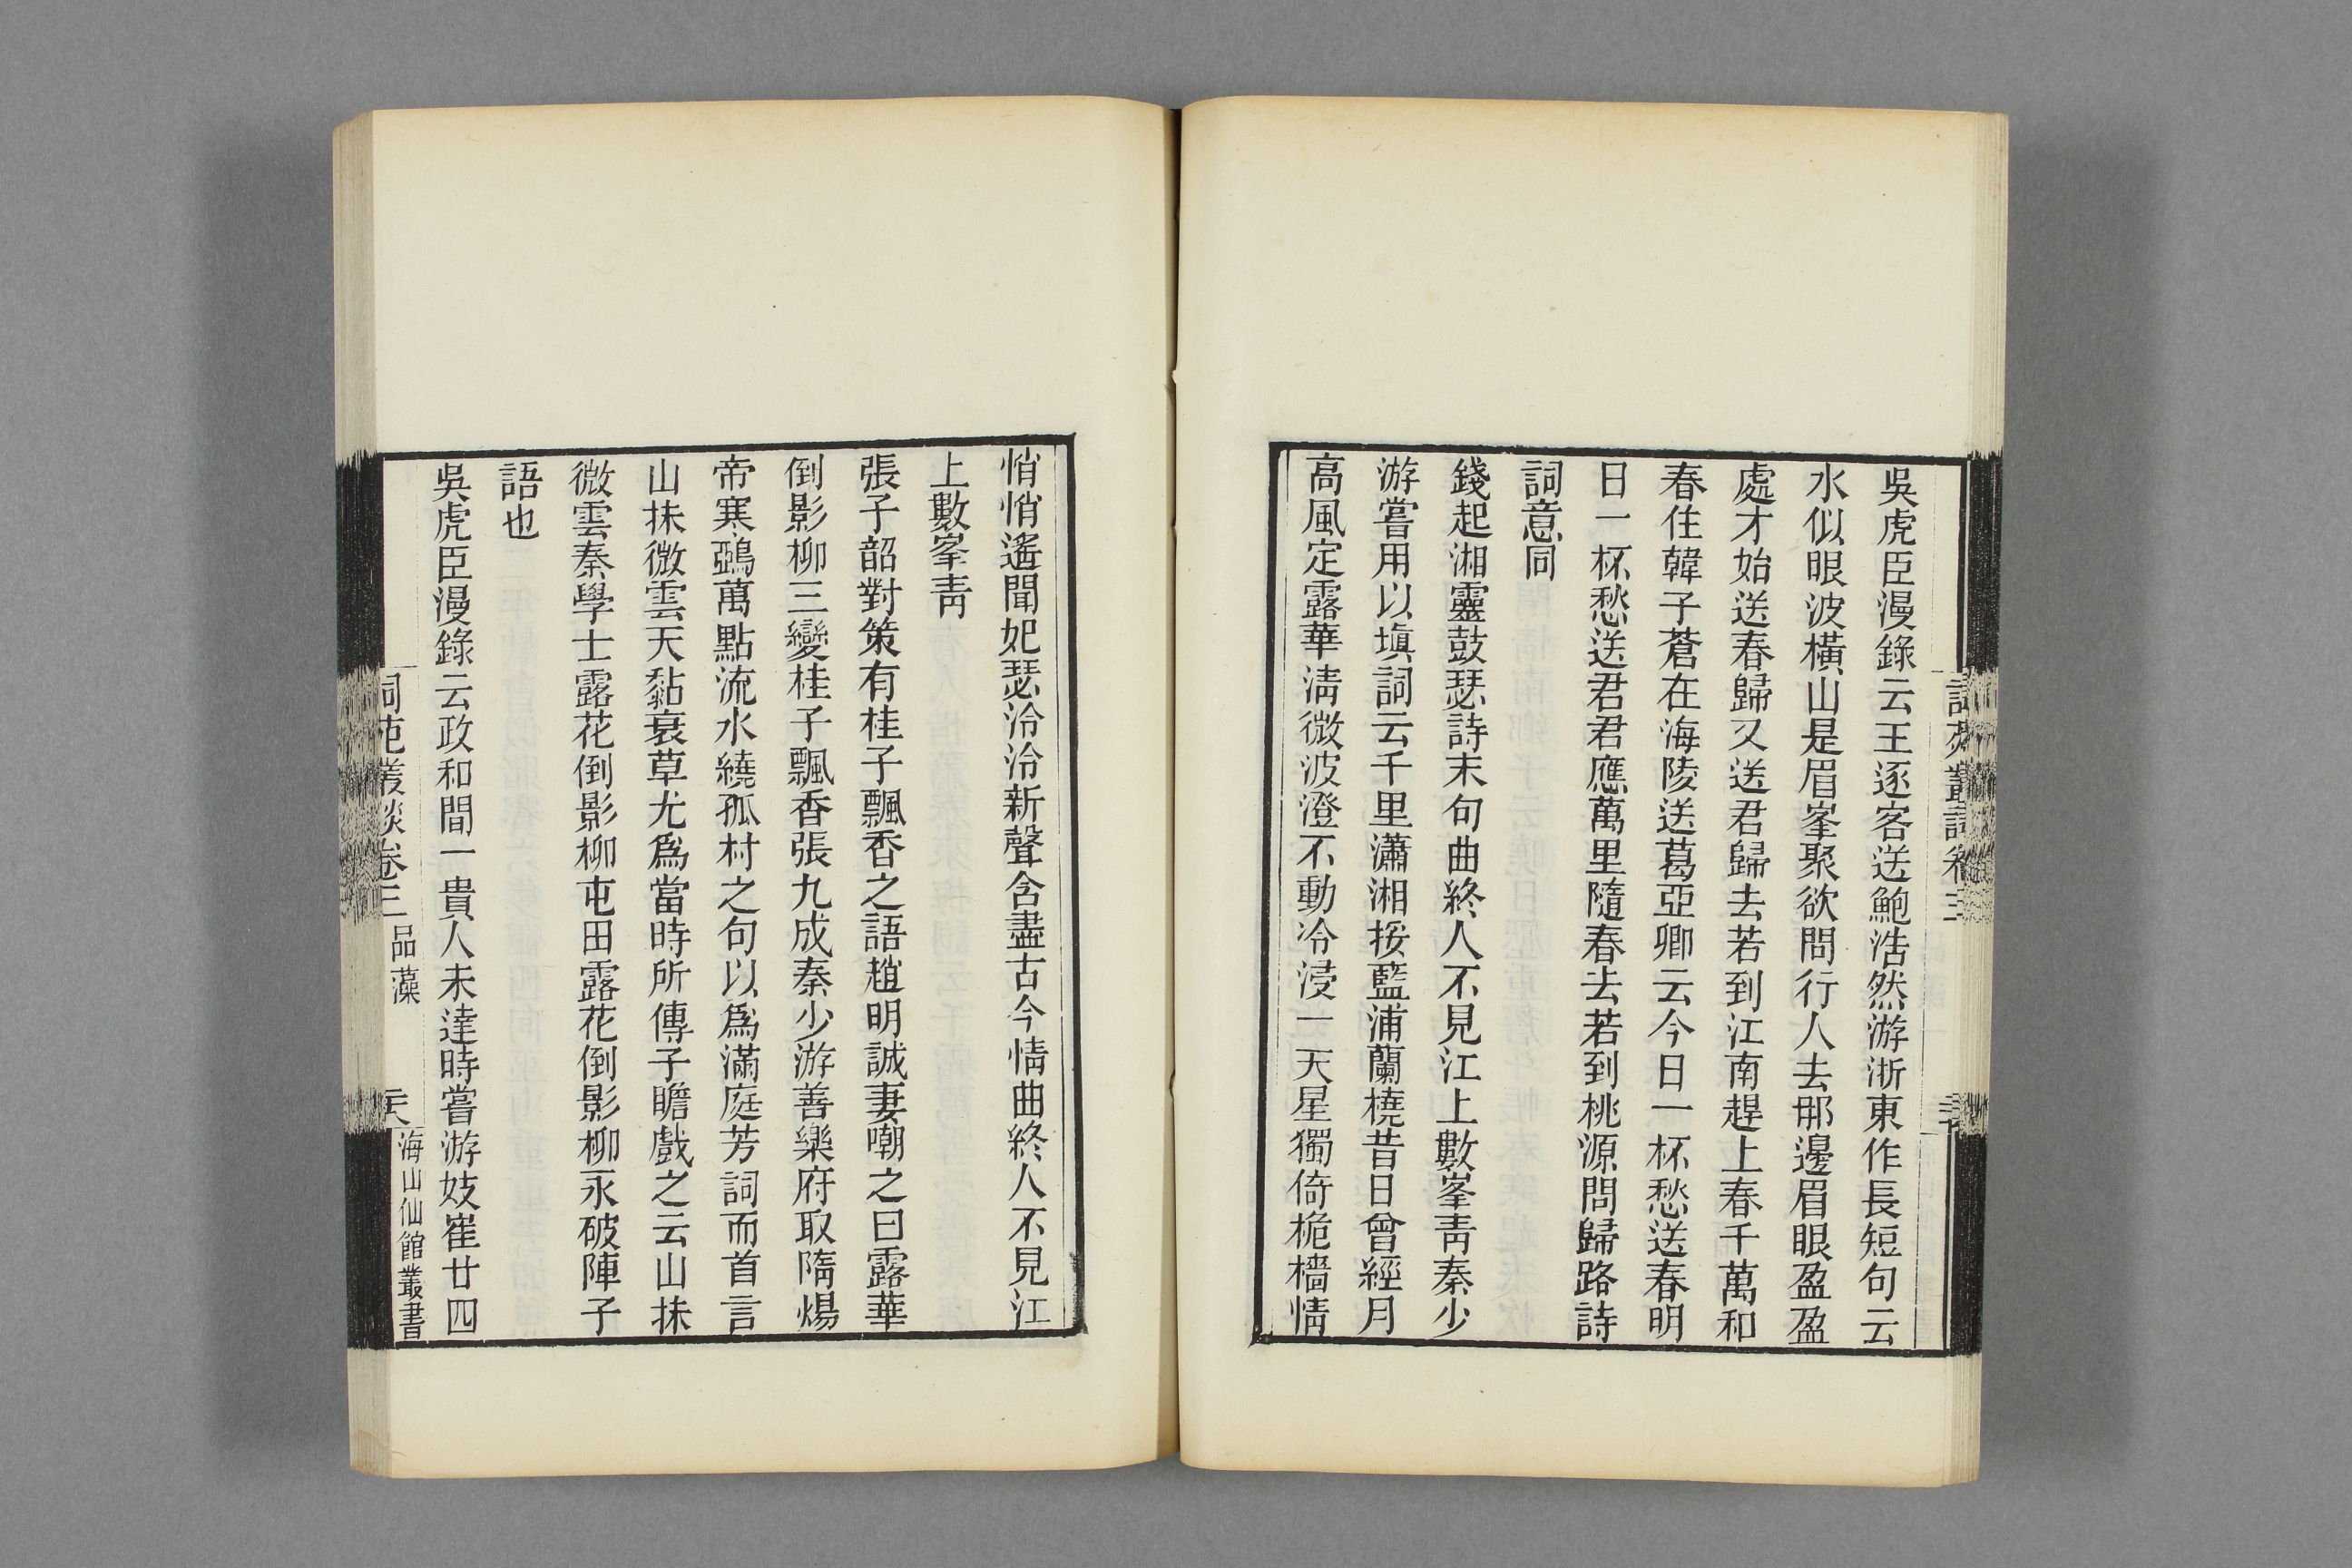 吳虎臣漫錄云王逐客送鮑浩然游浙東作長短句云
水似眼波橫山是眉峯聚欲問行人去那邊眉眼盈盈
處才始送春歸又送君歸去若到江南趕上春千萬和
春住韓子蒼在海陵送葛亞卿云今日一杯愁送春明
日一杯愁送君君應萬里隨春去若到桃源問歸路詩
詞意同
錢起湘靈鼓瑟詩末句曲終人不見江上數峯靑秦少
游嘗用以塡詞云千里瀟湘挼藍浦蘭橈昔日曾經月
高風定露華淸微波澄不動冷浸一天星獨倚桅檣情
悄悄遙聞妃瑟泠泠新聲含盡古今情曲終人不見江
上數峯靑
張子韶對策有桂子飄香之語趙明誠妻嘲之曰露華
倒影柳三變桂子飄香張九成秦少游善樂府取隋煬
帝寒鵶萬點流水繞孤村之句以爲滿庭芳詞而首言
山抹微雲天黏衰草尤爲當時所傳子瞻戲之云山抹
微雲秦學士露花倒影柳屯田露花倒影柳永破陣子
語也
吳虎臣漫錄云政和間一貴人未達時嘗游妓崔廿四
詞苑叢談卷三 品藻 海山仙館叢書